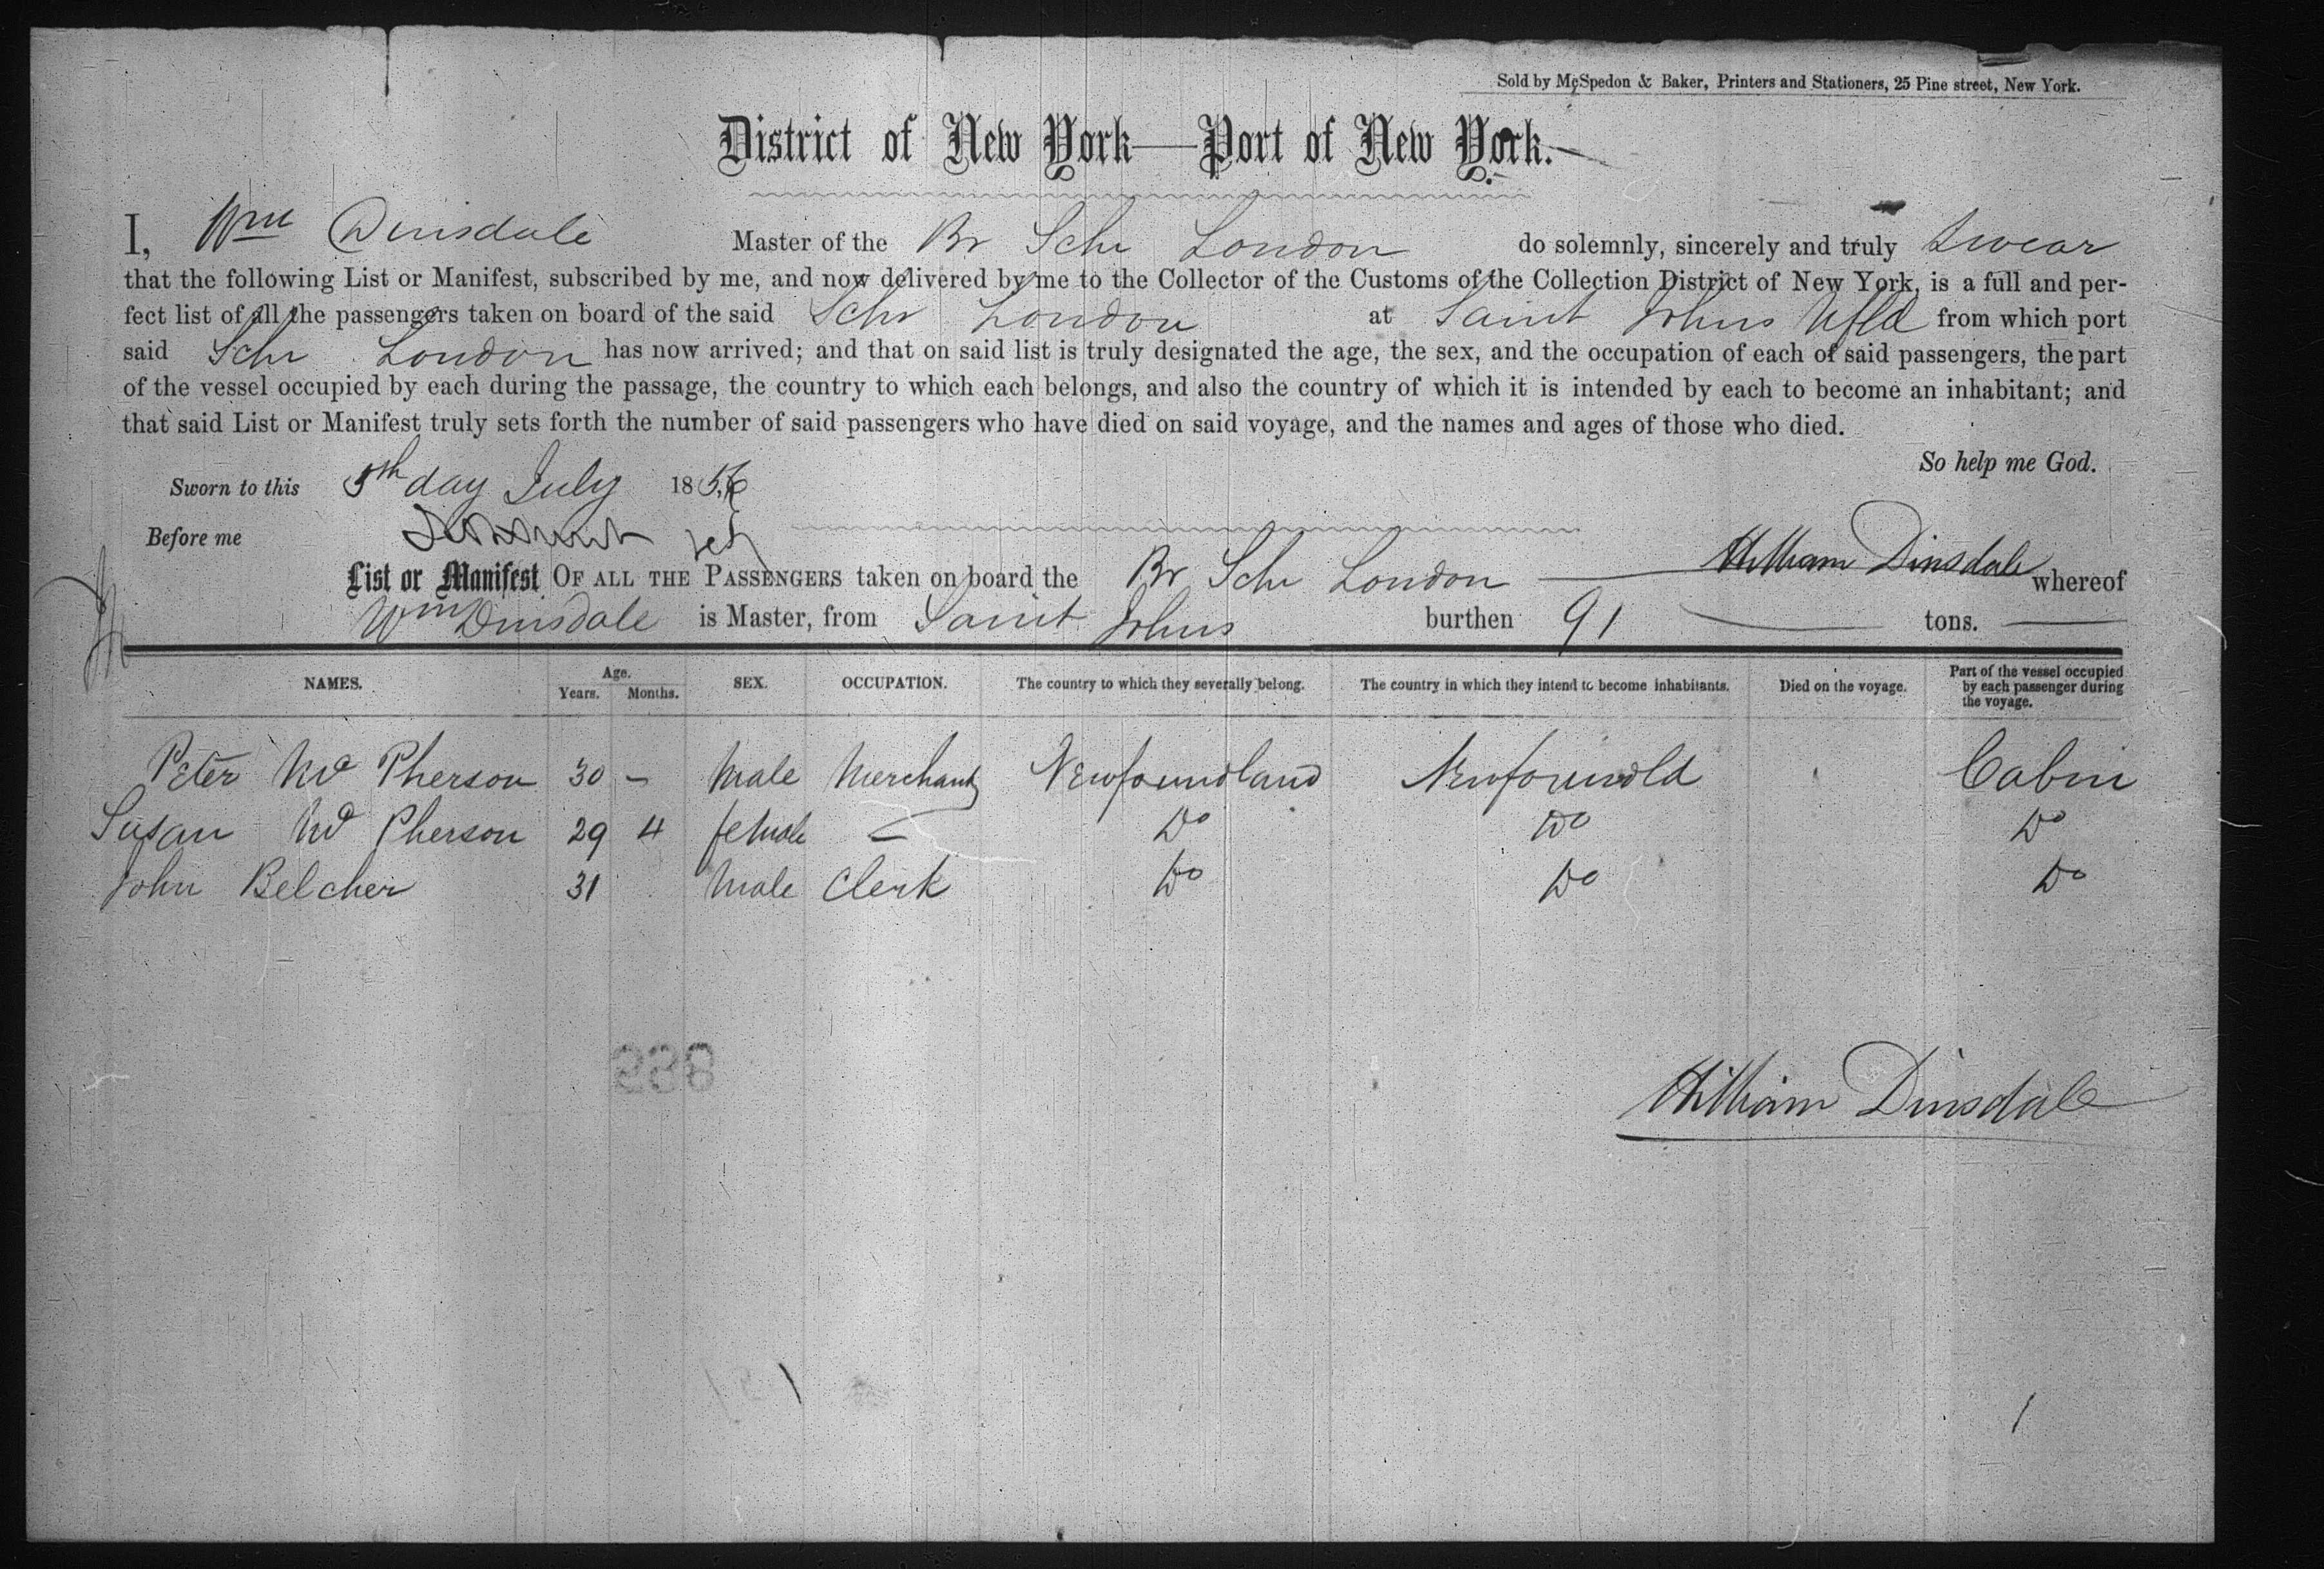 Sold by McSpedon & Baker, Printers and Stationers, 25 Pine street, New York.
District of New York—Port of New York.
I, Wm Dinsdale Master of the Br Schr London do solemnly, sincerely and truly swear
that the following List or Manifest, subscribed by me, and now delivered by me to the Collector of the Customs of the Collection District of New York, is a full and per-
fect list of all the passengers taken on board of the said Schr London at Saint Johns Nfld from which port
said Schr London has now arrived; and that on said list is truly designated the age, the sex, and the occupation of each of said passengers, the part
of the vessel occupied by each during the passage, the country to which each belongs, and also the country of which it is intended by each to become an inhabitant; and
that said List or Manifest truly sets forth the number of said passengers who have died on said voyage, and the names and ages of those who died.
So help me God.
Sworn to this 5th day July 1856
Before me
William Dinsdale
List or Manifest OF ALL THE PASSENGERS taken on board the Br Schr London whereof
Wm Dinsdale is Master, from Saint Johns burthen 91 tons.
NAMES. Age. Years. Months. SEX. OCCUPATION. The country to which they severally belong. The country in which they intend to become inhabitants. Died on the voyage. Part of the vessel occupied by each passenger during the voyage.
Peter McPherson 30 – Male Merchant Newfoundland Newfoundld Cabin
Susan McPherson 29 4 female – Do Do Do
John Belcher 31 Male Clerk Do Do Do
William Dinsdale